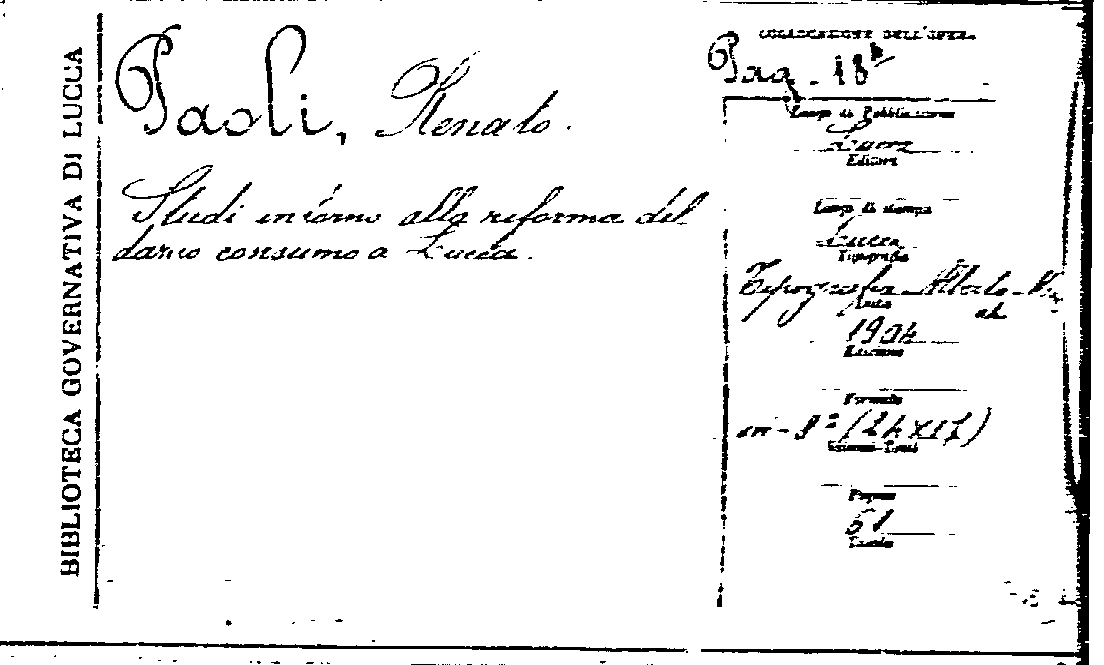 BIBLIOTECA GOVERNATIVA DI LUCCA
Paoli, Renato.
Studi intorno alla reforma del
dazio consumo a Lucca.
COLLOCAZIONE DELL'OPERA
Luogo di Pubblicazione
Lucca
Editore
Luogo di stampa
Lucca
Tipografia
Tipografia Alberto
Data
1904
Edizione
Formato
in-8° (24x17)
Pagine
61
Tavole